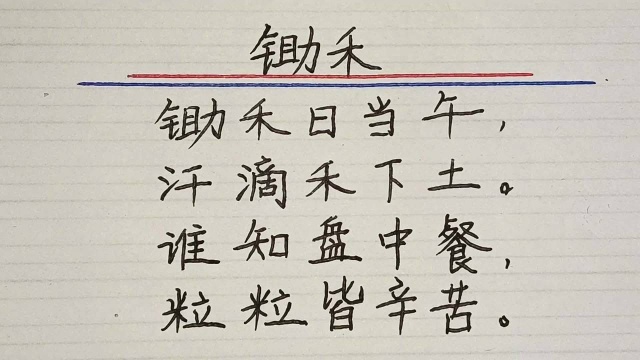 锄禾
锄禾日当午，
汗滴禾下土。
谁知盘中餐，
粒粒皆辛苦。